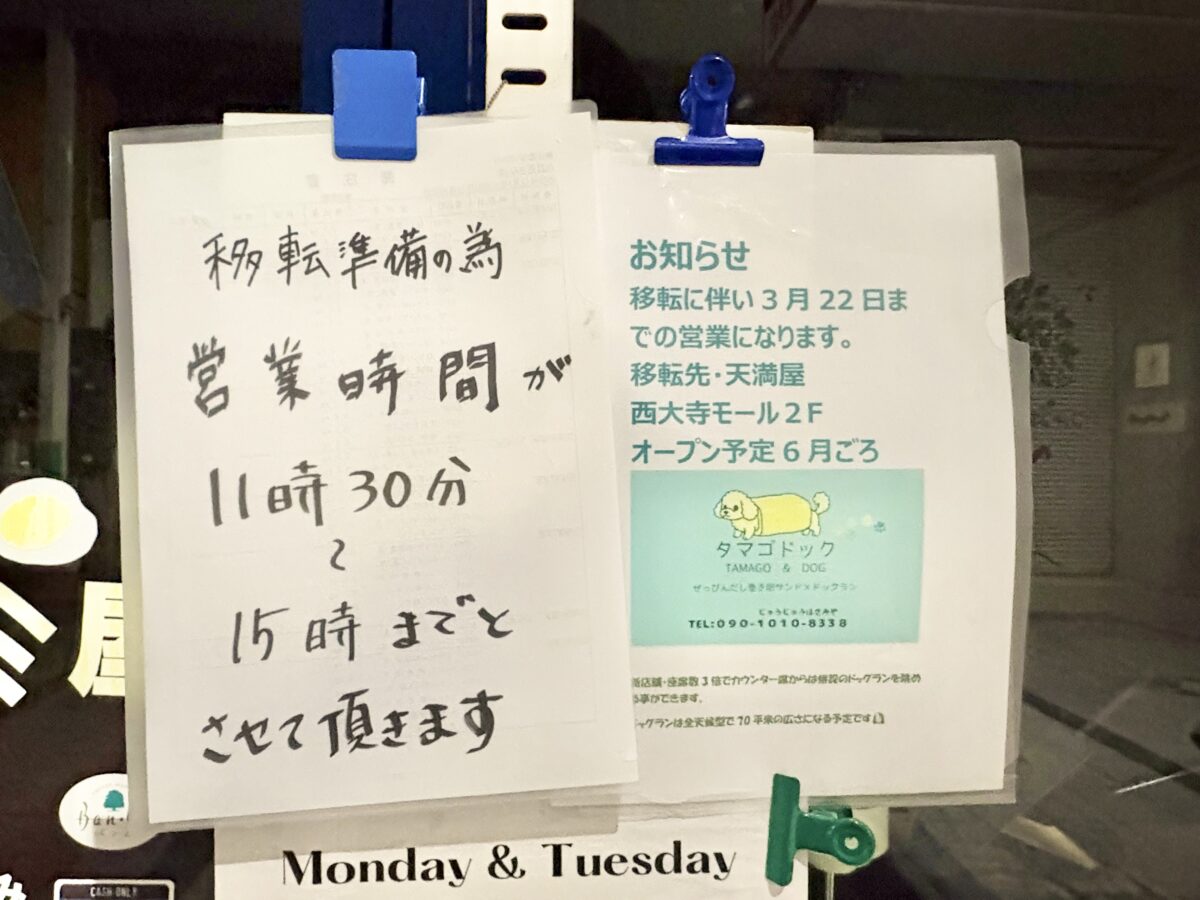 移転準備の為
営業時間が
11時30分
〜
15時までと
させて頂きます
お知らせ
移転に伴い3月22日ま
での営業になります。
移転先・天満屋
西大寺モール2F
オープン予定6月ごろ
タマゴドック
TAMAGO & DOG
ぜっぴんだし巻き卵サンド×ドックラン
じゅうじゅうはさみや
TEL:090-1010-8338
店舗・座席数3倍でカウンター席からは併設のドッグランを眺め
事ができます。
ッグランは全天候型で70平米の広さになる予定です
Monday & Tuesday
CASH ONLY